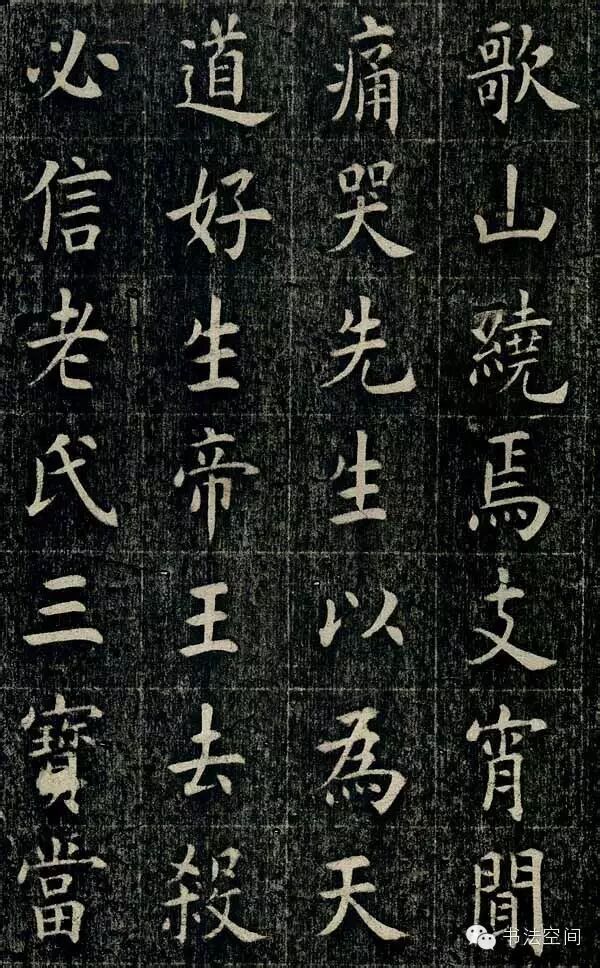 歌山繞焉支宵聞
痛哭先生以為天
道好生帝王去殺
必信老氏三寶當
书法空间